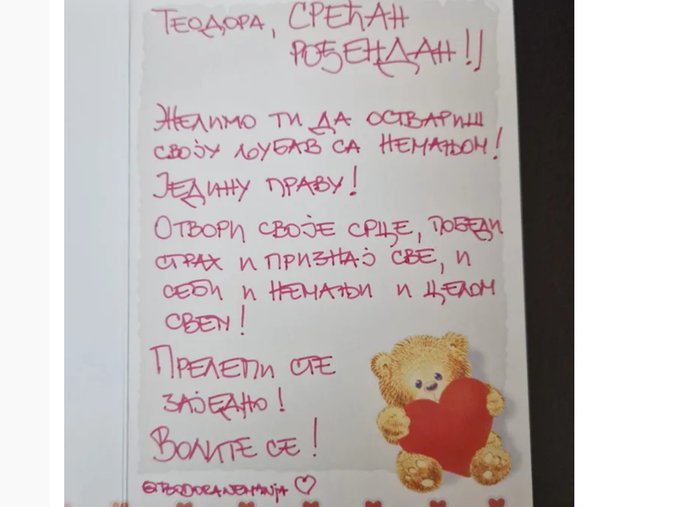 ТЕОДОРА, СРЕЋАН
РОЂЕНДАН!!
ЖЕЛИМО ТИ ДА ОСТВАРИШ
СВОЈУ ЉУБАВ СА НЕМАЊОМ!
ЈЕДИНУ ПРАВУ!
ОТВОРИ СВОЈЕ СРЦЕ, ПОБЕДИ
СТРАХ И ПРИЗНАЈ СВЕ, И
СЕБИ И НЕМАЊИ И ЦЕЛОМ
СВЕТУ!
ПРЕЛЕПИ СТЕ
ЗАЈЕДНО!
ВОЛИТЕ СЕ!
@TEODORANEMANJA ♡